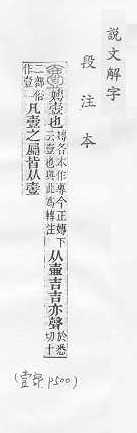 說文解字
段注本
嫥壹也嫥各本作專今正嫥下云壹也與此爲轉注从壺吉吉亦聲於悉切十
二部俗作壹凡壹之屬皆从壹
(壹部 P500)